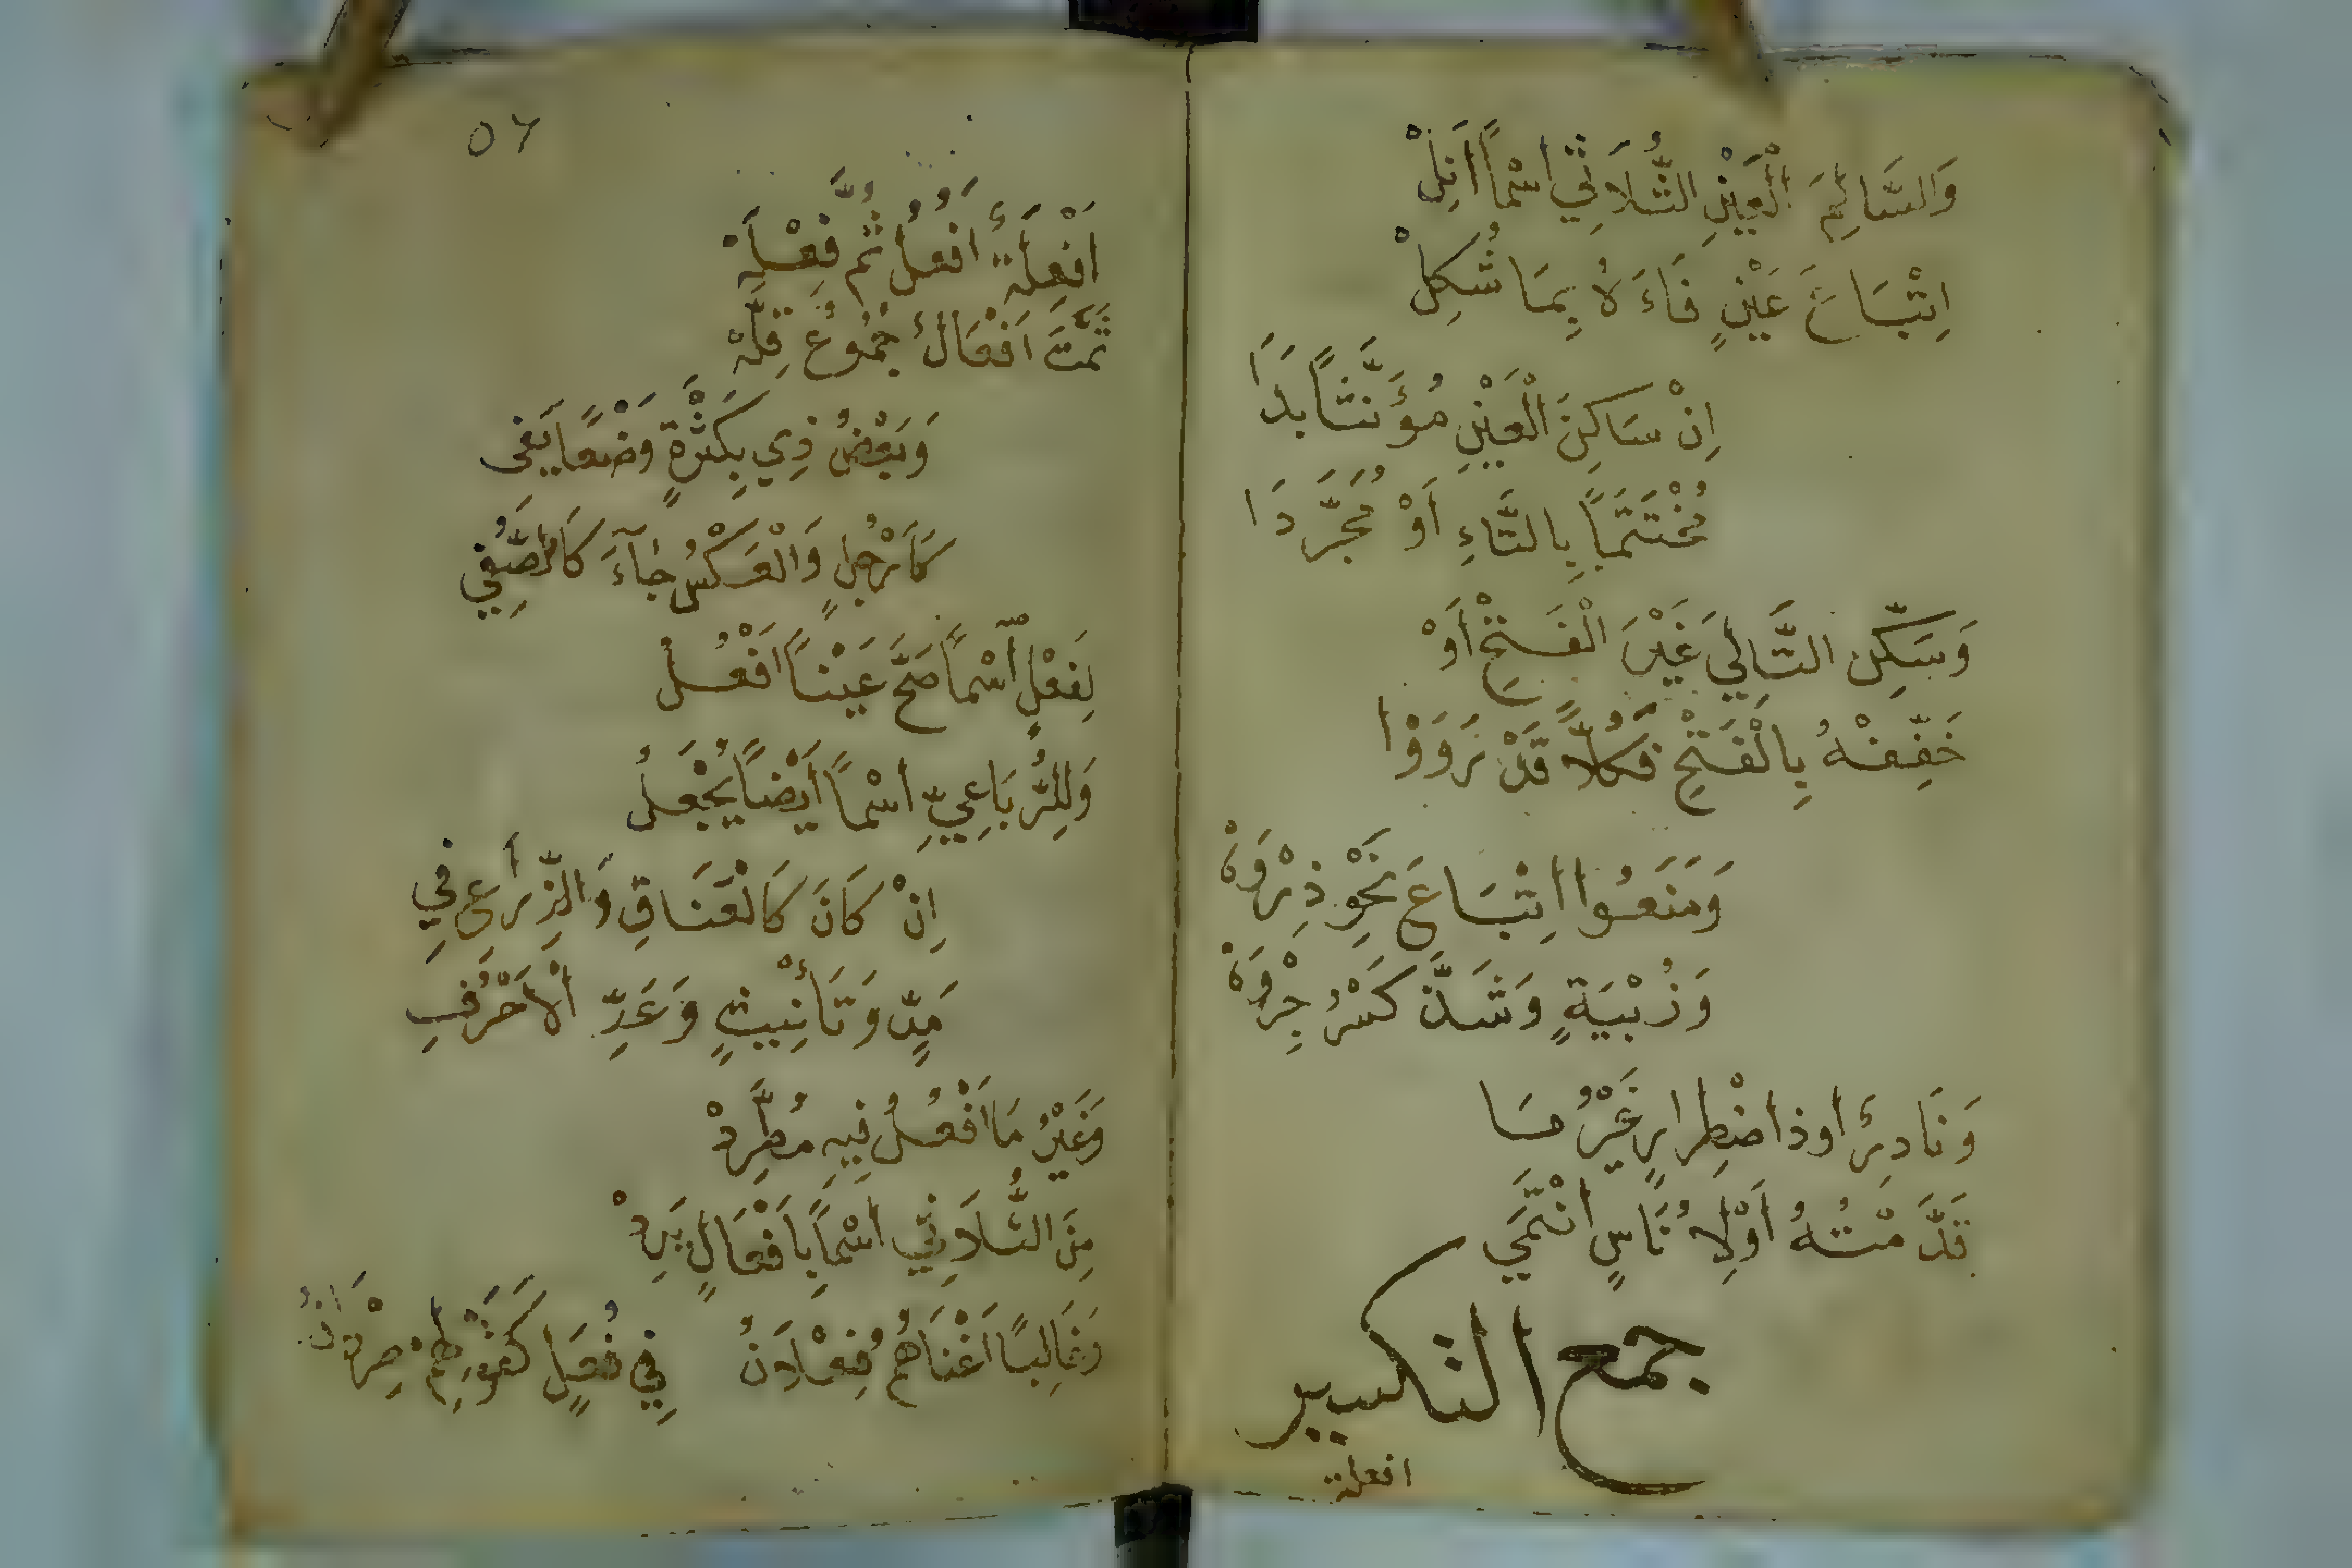 وَالسَّالِمَ الْعَيْنِ الثُّلَاثِي اسْمًا أَنِلْ
اِتْبَاعَ عَيْنٍ فَاءَهُ بِمَا شُكِلْ
اِنْ سَاكِنَ الْعَيْنِ مُؤَنَّثًا بَدَا
مُخْتَتَمًا بِالتَّاءِ أَوْ مُجَرَّدَا
وَسَكِّنِ التَّالِيَ غَيْرَ الْفَتْحِ أَوْ
خَفِّفْهُ بِالْفَتْحِ فَكُلًّا قَدْ رَوَوْا
وَمَنَعُوا اِتْبَاعَ نَحْوِ ذِرْوَهْ
وَزُبْيَةٍ وَشَذَّ كَسْرُ جِرْوَهْ
وَنَادِرٌ اوذا ضْطِرارٍ غَيْرُ مَا
قَدَّمْتُهُ أَوْ لِأُنَاسٍ انْتَمَى
جمع التكسير
افعلة
٥٦
اَفْعِلَةٌ اَفْعُلُ ثُمَّ فِعْلَهْ
ثُمَّتَ اَفْعَالٌ جُمُوعُ قِلَّهْ
وَبَعْضُ ذِي بِكَثْرَةٍ وَضْعًا يَفِى
كَأَرْجُلٍ وَالْعَكْسُ جَآءَ كَالصُّفِي
لِفَعْلٍ اسْمًا صَحَّ عَيْنًا اَفْعُلُ
وَلِلرُّبَاعِيِّ اسْمًا أَيْضًا يُجْعَلُ
اِنْ كَانَ كَالْعَنَاقِ وَالذِّرَاعِ فِي
مَدٍّ وَتَأْنِيثٍ وَعَدِّ الْاَحْرُفِ
وَغَيْرُ مَا اَفْعُلُ فِيهِ مُطَّرِدْ
مِنَ الثُّلَاثِي اسْمًا بِاَفْعَالٍ يَرِدْ
وَغَالِبًا اَغْنَاهُمُ فِعْلَانُ فِي فُعَلٍ كَقَوْلِهِمْ صِرْدَانُ